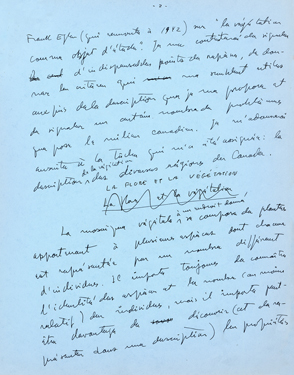 - 2 -
Frank Egler (qui remonte à 1942) sur "la végétation
comme objet d'étude". Je me contenterai de signaler
d'indispensables points de repère, de don-
ner les critères qui me semblent utiles
aux fins de la description que je me propose et
de signaler un certain nombre de problèmes
que pose le milieu canadien. Je m'adonnerai
ensuite à la tâche qui m'a été assignée: la
description de la végétation des diverses régions du Canada.
LA FLORE ET LA VÉGÉTATION
La flore et la végétation
La mosaïque végétale à un endroit donné se compose de plantes
appartenant à plusieurs espèces dont chacune
est représentée par un nombre différent
d'individus. Il importe toujours de connaître
l'identité des espèces et le nombre (au moins
relatif) des individus, mais il importe peut-
être davantage de découvrir (et de re-
présenter dans une description) les propriétés